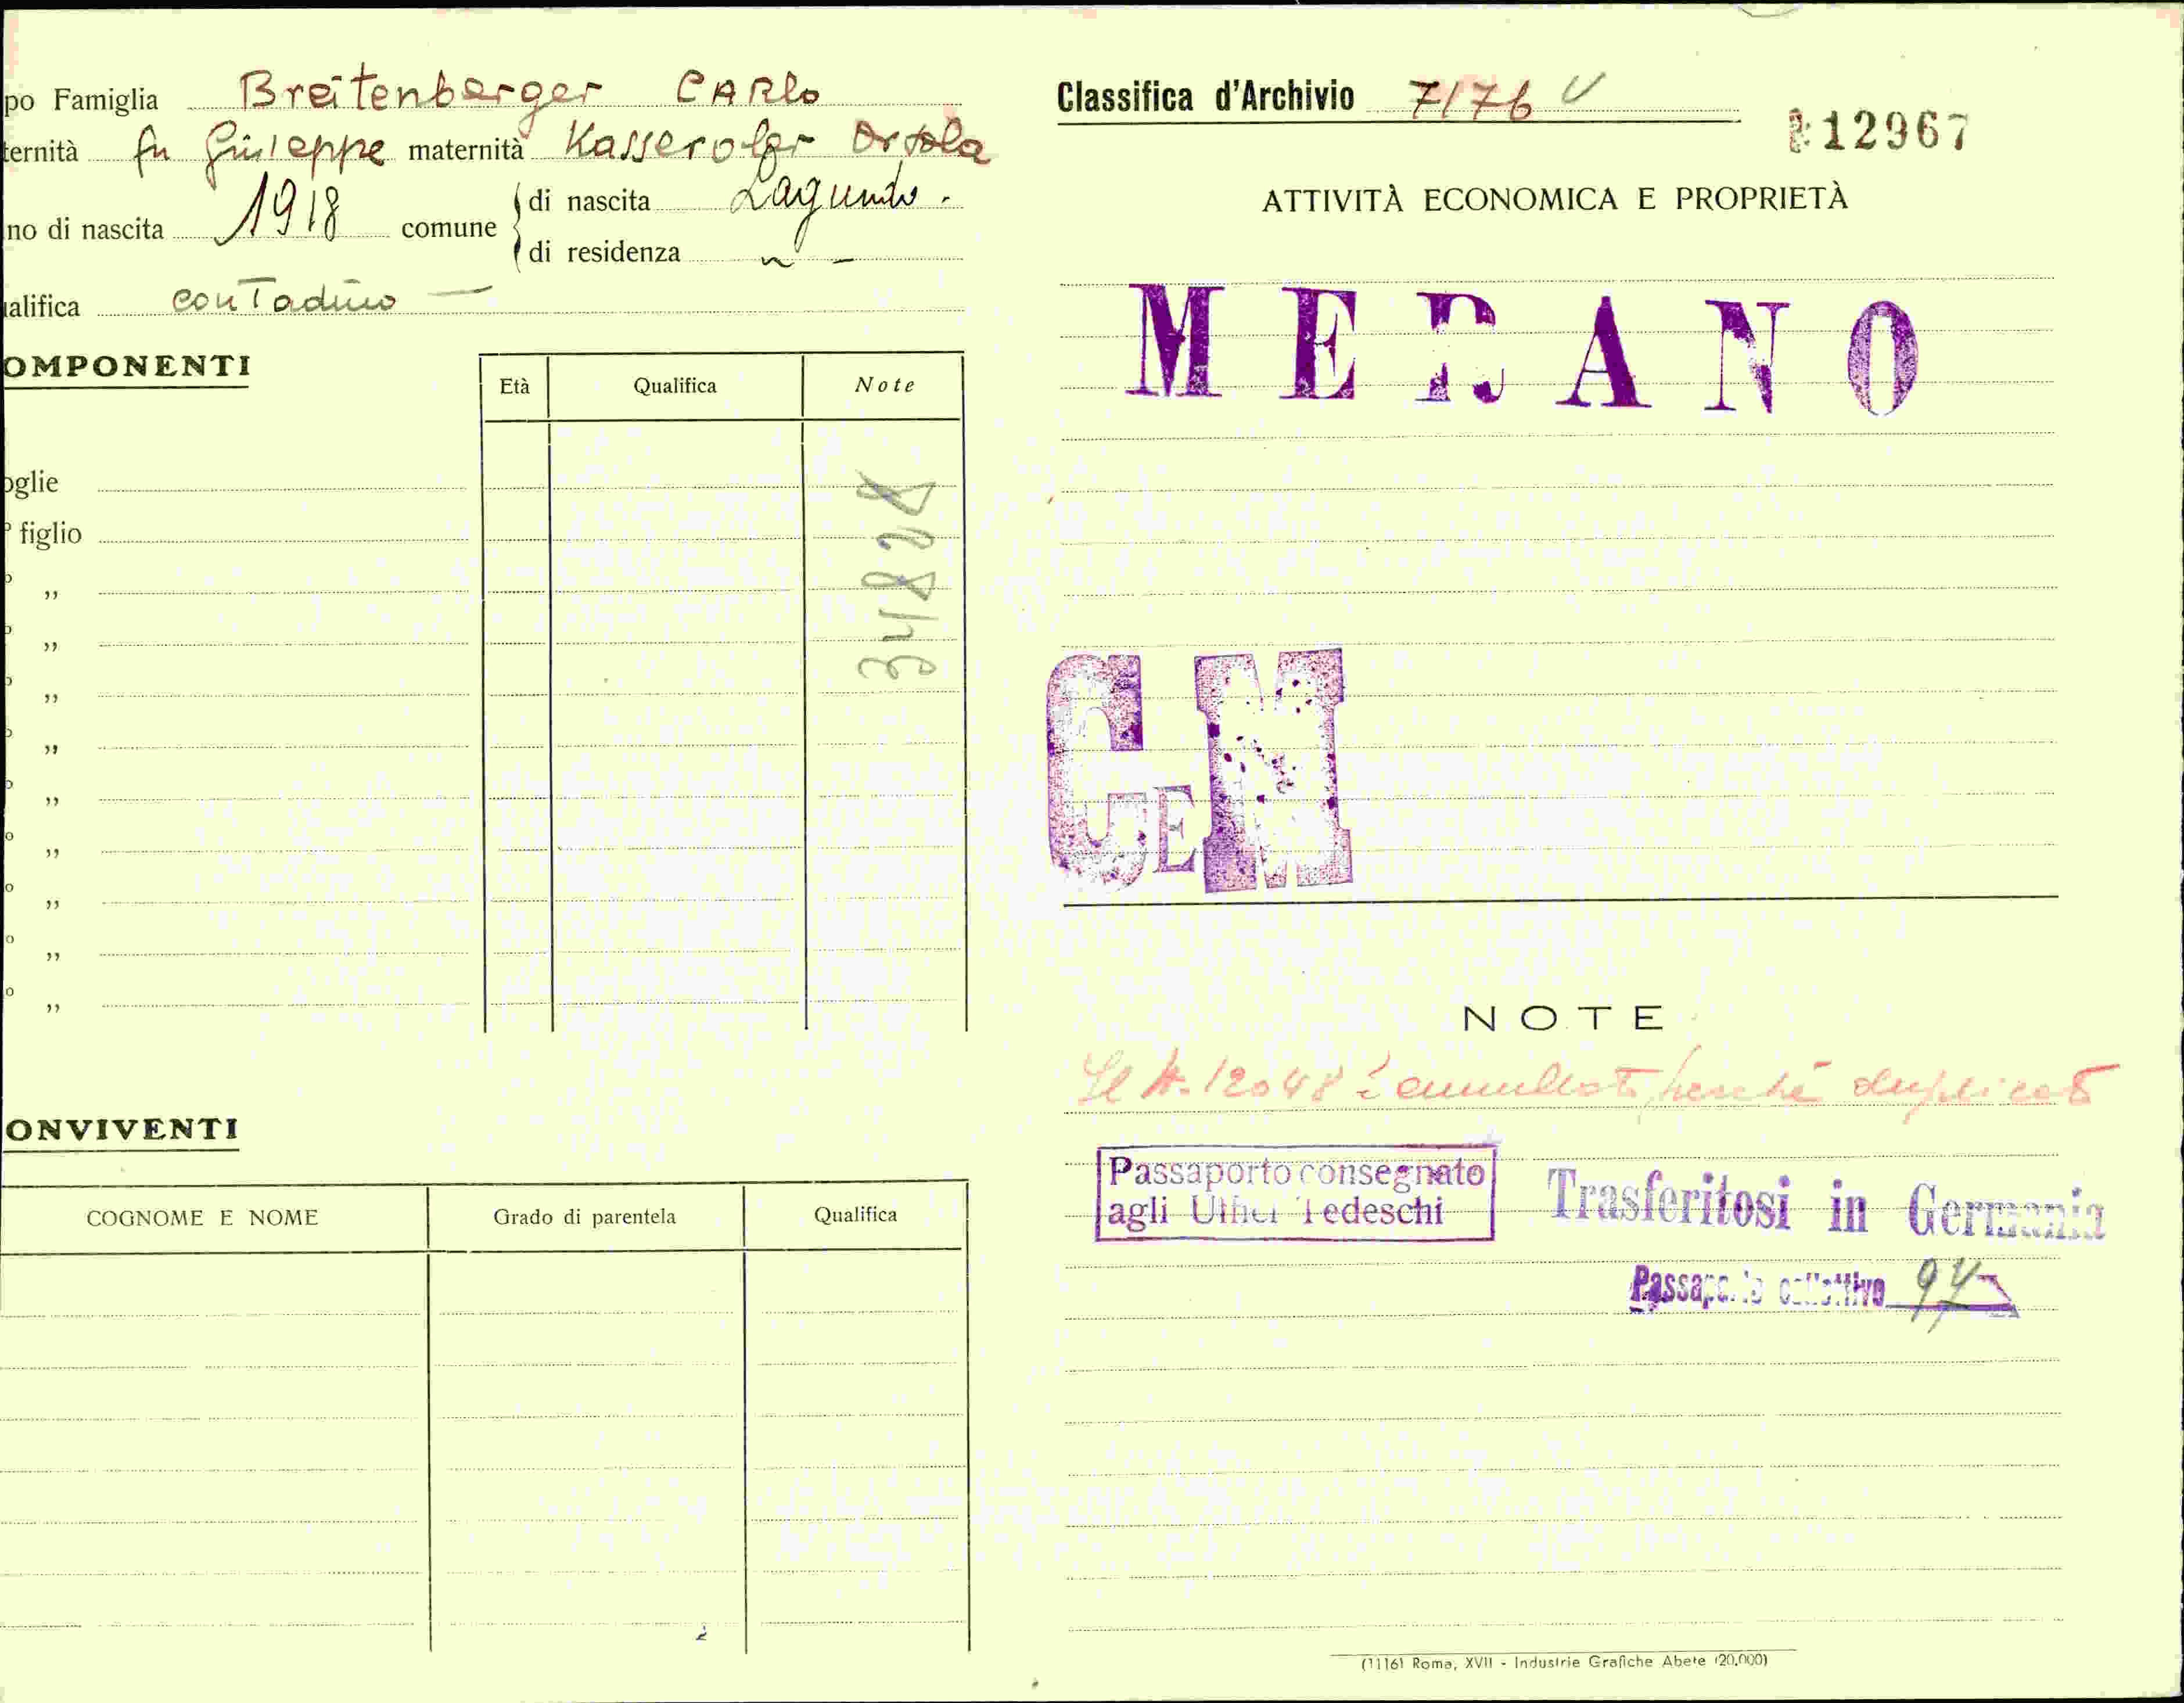 po Famiglia Breitenberger CARlo
ternità fu Giuseppe maternità Kasserofer Orsola
no di nascita 1918 comune di nascita Lagundo.
di residenza " -
alifica contadino —
OMPONENTI
Età Qualifica Note
oglie
° figlio
34828
o ,,
o ,,
o ,,
o ,,
o ,,
o ,,
o ,,
o ,,
o ,,
ONVIVENTI
COGNOME E NOME Grado di parentela Qualifica
Classifica d'Archivio 7/76 V
12967
ATTIVITÀ ECONOMICA E PROPRIETÀ
MERANO
GEM
NOTE
Il N. 12048 è annullato perché duplicato
Passaporto consegnato
agli Uffici Tedeschi
Trasferitosi in Germania
Passaporto collettivo 97
(1116) Roma, XVII - Industrie Grafiche Abete (20.000)